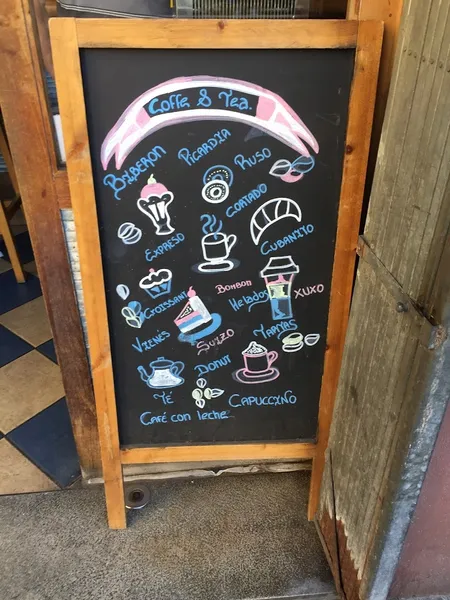 Coffe & Tea.
Biberon
Picardia
Ruso
Cortado
Expreso
Cubanito
Bombon
Helados
Xuxo
Croissant
Vienés
Suizo
Tapitas
Donut
Té
Capuccino
Café con leche